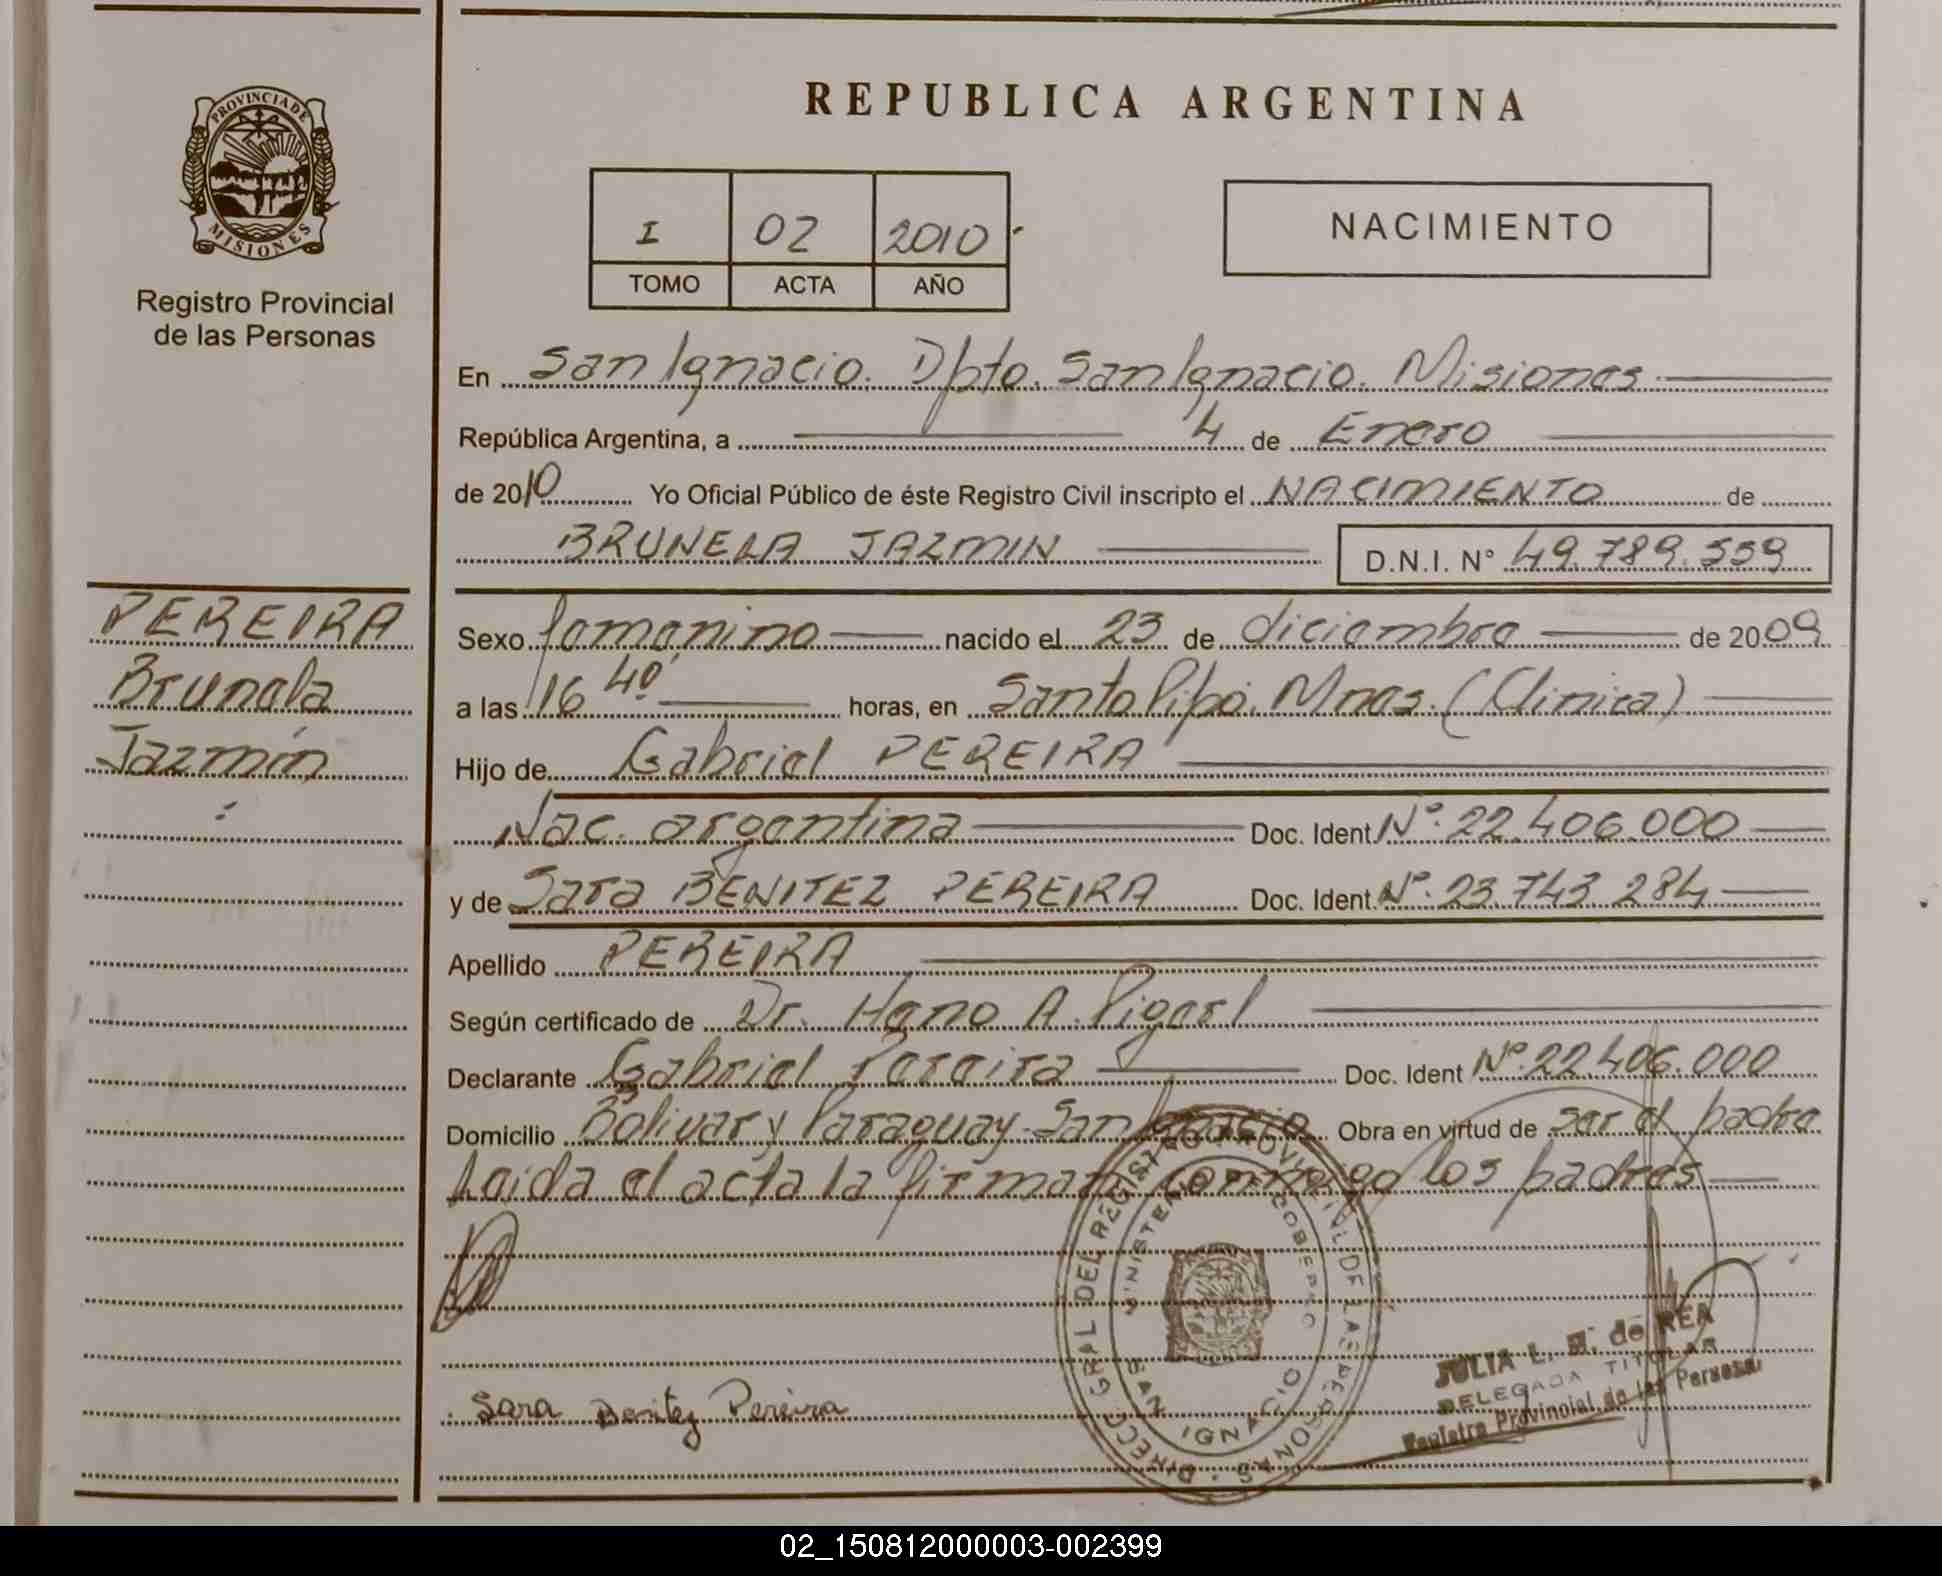 REPUBLICA ARGENTINA
PROVINCIA DE
MISIONES
Registro Provincial
de las Personas
I 02 2010
TOMO ACTA AÑO
NACIMIENTO
En San Ignacio. Dpto. San Ignacio. Misiones
República Argentina, a 4 de Enero
de 2010 Yo Oficial Público de éste Registro Civil inscripto el NACIMIENTO de
BRUNELA JAZMIN D.N.I. N° 49.789.559
PEREIRA
Brunela
Jazmín
Sexo femenino nacido el 23 de diciembre de 2009
a las 16 40' horas, en Santo Pipó. Mnes. (Clinica)
Hijo de Gabriel PEREIRA
Nac. argentina Doc. Ident N° 22.406.000
y de Sara BENITEZ PEREIRA Doc. Ident. N° 23.743.284
Apellido PEREIRA
Según certificado de Dr. A.
Declarante Gabriel Pereira Doc. Ident N° 22.406.000
Domicilio Bolivar y Paraguay-San Ignacio Obra en virtud de ser el padre
Leida el acta la firman conmigo los padres
Sara Benitez Pereira
DIRECC. GRAL DEL REGISTRO PROVINCIAL DE LAS PERSONAS
MINISTERIO GOBIERNO
SAN IGNACIO
JULIA L. de REA
DELEGADA TITULAR
Registro Provincial de las Personas
02_150812000003-002399